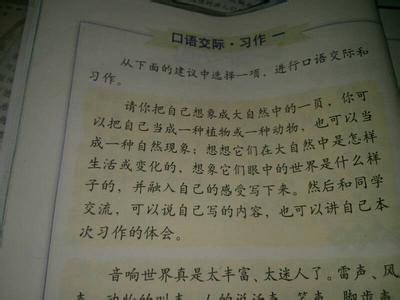 口语交际·习作 一
从下面的建议中选择一项，进行口语交际和
习作。
请你把自己想象成大自然中的一员，你可
以把自己当成一种植物或一种动物，也可以当
成一种自然现象；想想它们在大自然中是怎样
生活或变化的，想象它们眼中的世界是什么样
子的，并融入自己的感受写下来。然后和同学
交流，可以说自己写的内容，也可以讲自己本
次习作的体会。
音响世界真是太丰富、太迷人了。雷声、风